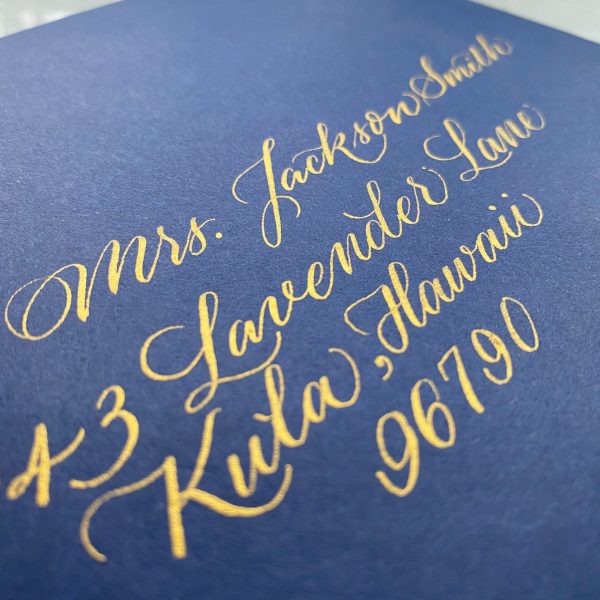 Mrs. Jackson Smith
43 Lavender Lane
Kula, Hawaii
96790